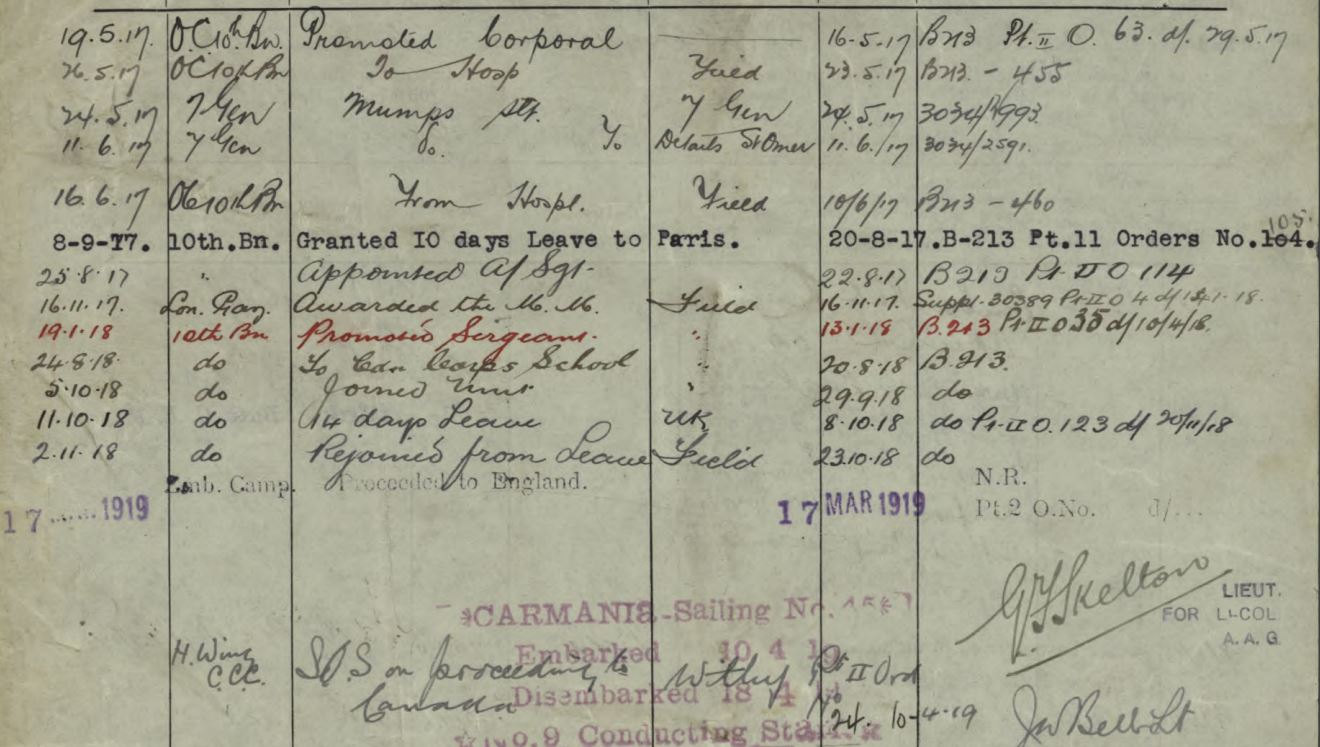 19.5.17. O.C 10th Bn. Promoted Corporal 16-5-17 B213 Pt. II O. 63. d/. 29.5.17
26.5.17 OC 10th Bn To Hosp Field 23.5.17 B213. - 455
24.5.17 7 Gen Mumps 7 Gen 24.5.17 3034/
11.6.17 7 Gen Do. To Details St Omer 11.6./17 3034/2591.
16.6.17 OC 10th Bn From Hospl. Field 10/6/17 B213 - 460
8-9-17. 10th.Bn. Granted 10 days Leave to Paris. 20-8-17. B-213 Pt.11 Orders No.104. 105.
25.8.17 " Appointed A/Sgt. 22.8.17 B213 Pt II O 114
16.11.17. Lon. Gaz. Awarded the M.M. Field 16-11-17. Suppl. 30389 Pt II O 4 d/ 1.18.
19.1.18 10th Bn Promoted Sergeant. " 13.1.18 B.213 Pt II O 35 d/10/4/18.
24.8.18. do To Cdn Corps School " 20.8.18 B.213.
5.10.18 do Joined Unit " 29.9.18 do
11.10.18 do 14 days Leave UK 8.10.18 do Pt II O.123 d/ 20/11/18
2.11.18 do Rejoined from Leave Field 23.10.18 do
Emb. Camp. Proceeded to England. N.R.
17 1919 17 MAR 1919 Pt.2 O.No. d/...
G Skelton LIEUT.
FOR Lt-COL
A.A.G.
*CARMANIA-Sailing No.
Embarked 10 4 19
H. Wing C.C.C. S.O.S on proceeding to Canada Witley Pt II Ord No 24. 10-4-19
Disembarked 18 4
JW Bell Lt
No.9 Conducting Staff